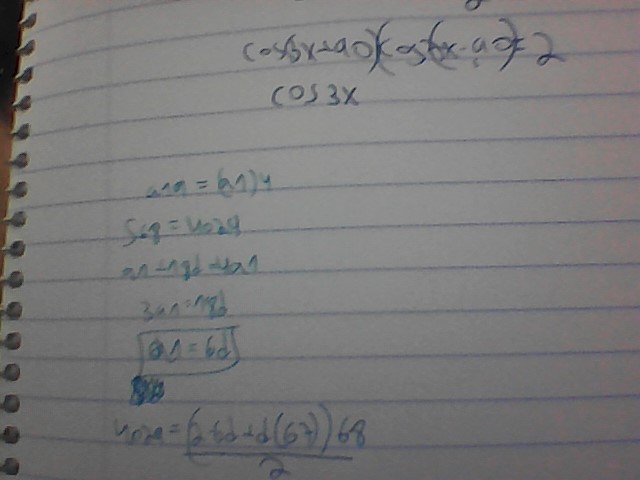 cos(5x+a0)(cos(5x-a0)=2
cos3x
a19 = (a1)4
S68 = 4029
a1+18d=4a1
3a1=18d
a1=6d
4029=(2·6d+d(67))68
2